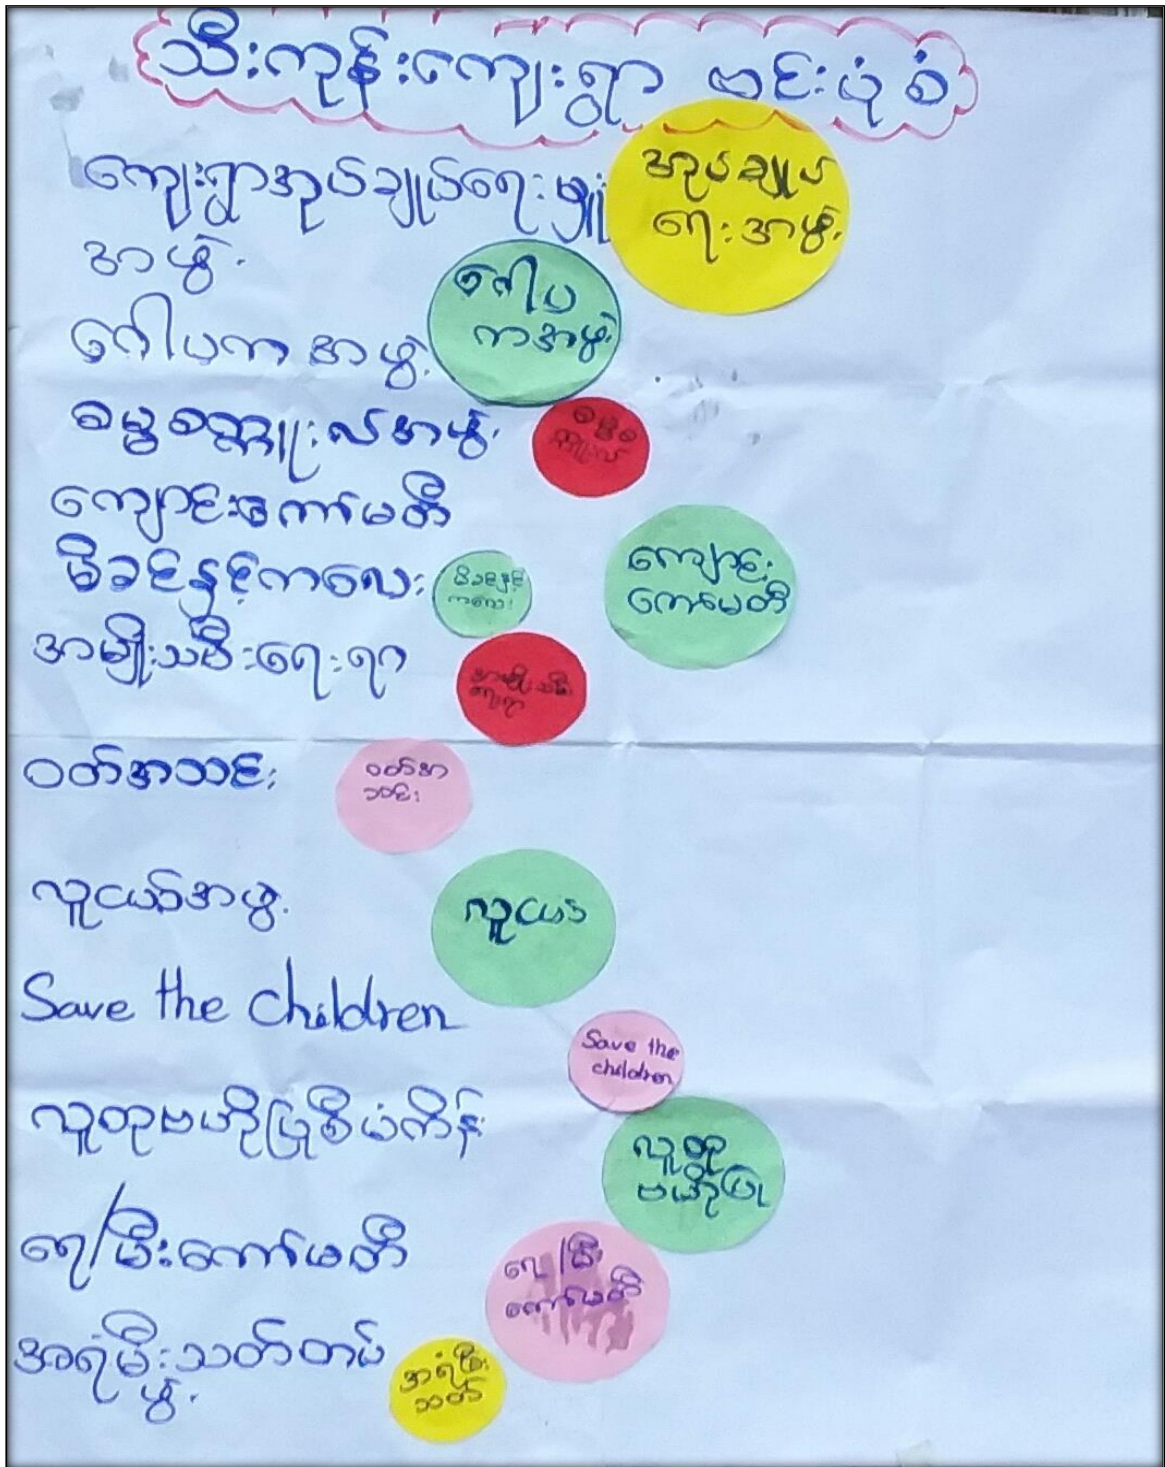 သီးကုန်းကျေးရွာ ဗင်းပုံစံ
ကျေးရွာအုပ်ချုပ်ရေးမှူး
အဖွဲ့
အုပ်ချုပ်
ရေးအဖွဲ့
ဂေါပကအဖွဲ့
ဂေါပ
ကအဖွဲ့
ဓမ္မစကြူးလ်အဖွဲ့
ကျောင်းကော်မတီ
ကျောင်း
ကော်မတီ
မိခင်နှင့်ကလေး
မိခင်နှင့်
ကလေး
အမျိုးသမီးရေးရာ
အမျိုးသမီး
ရေးရာ
ဝတ်အသင်း
ဝတ်အ
သင်း
လူငယ်အဖွဲ့
လူငယ်
Save the Children
Save the
children
လူထုဗဟိုပြုစီမံကိန်း
လူထု
ဗဟိုပြု
ရေ/မီးကော်မတီ
ရေ/မီး
ကော်မတီ
အရံမီးသတ်တပ်
ဖွဲ့
အရံမီး
သတ်